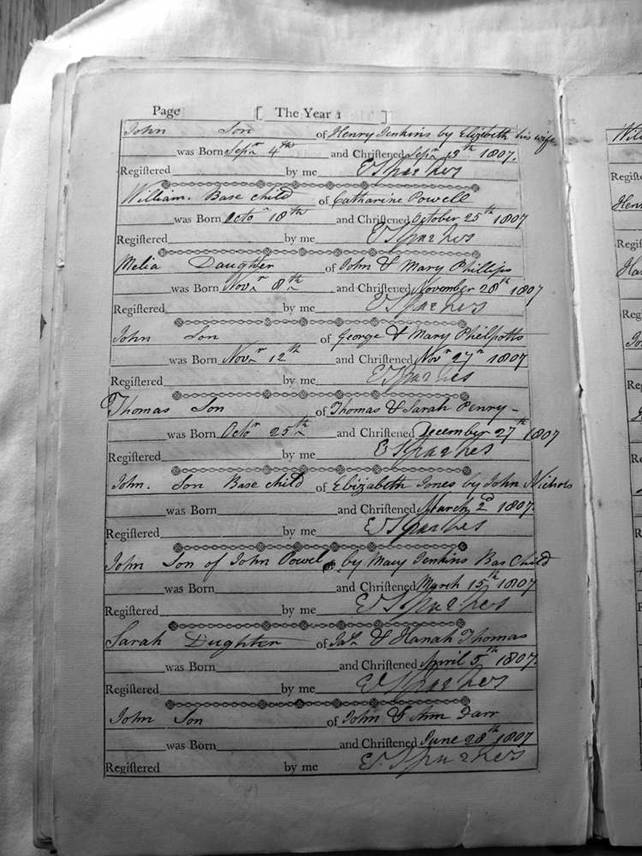 Page [ The Year 1 ]
John Son of Henry Jenkins by Elizbeth his wife
was Born Sepr 4th and Christened Sepr 13th 1807.
Registered by me E Sparkes
William. Base child of Catharine Powell
was Born Octor 18th and Christened October 25th 1807
Registered by me E Sparkes
Melia Daughter of John & Mary Phillips
was Born Novr 8th and Christened November 28th 1807
Registered by me E Sparkes
John Son of George & Mary Philpotts
was Born Novr 12th and Christened Novr 27th 1807
Registered by me E Sparkes
Thomas Son of Thomas & Sarah Penry
was Born Octr 25th and Christened December 27th 1807
Registered by me E Sparkes
John. Son Base child of Elizabeth Jones by John Nichols
was Born and Christened March 2d 1807.
Registered by me E Sparkes
John Son of John Powel by Mary Jenkins Bas Child
was Born and Christened March 15th 1807
Registered by me E Sparkes
Sarah Dughter of & Hanah Thomas
was Born and Christened April 5th 1807.
Registered by me E Sparkes
John Son of John & Ann Farr
was Born and Christened June 28th 1807
Registered by me E. Sparkes